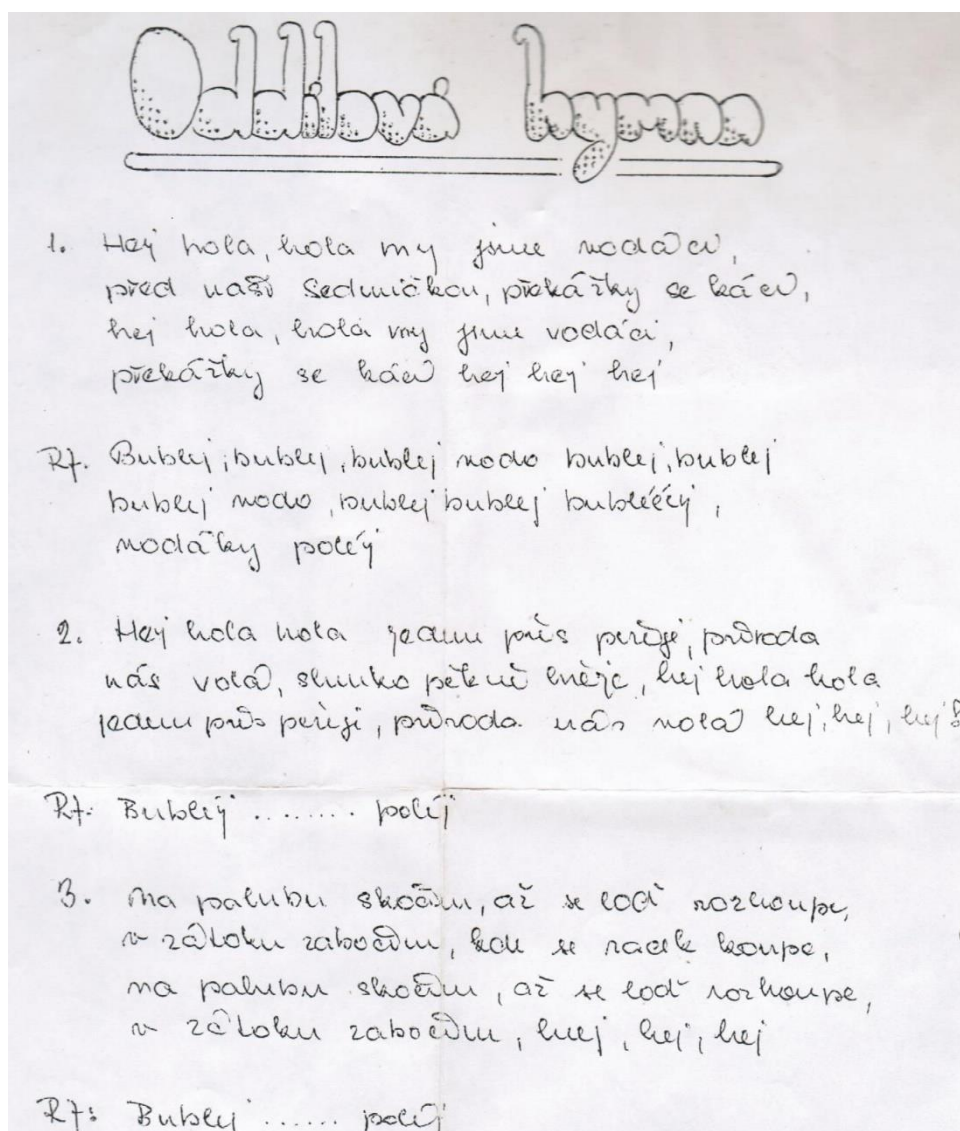 Oddílová hymna
1. Hej hola, hola my jsme vodáci,
před naší Sedmičkou, překážky se kácí,
hej hola, hola my jsme vodáci,
překážky se kácí hej hej hej
Rf. Bublej, bublej, bublej vodo bublej, bublej
bublej vodo, bublej bublej bubléééj,
vodáky poléj
2. Hej hola hola jedem přes peřeje, příroda
nás volá, slunko pěkně hřeje, hej hola hola
jedem přes peřeje, příroda nás volá hej, hej, hej
Rf. Bublej ........ poléj
3. Na palubu skočím, až se loď rozhoupe,
v zátoku zabočím, kde se racek koupe,
na palubu skočím, až se loď rozhoupe,
v zátoku zabočím, hej, hej, hej
Rf: Bublej ...... poléj